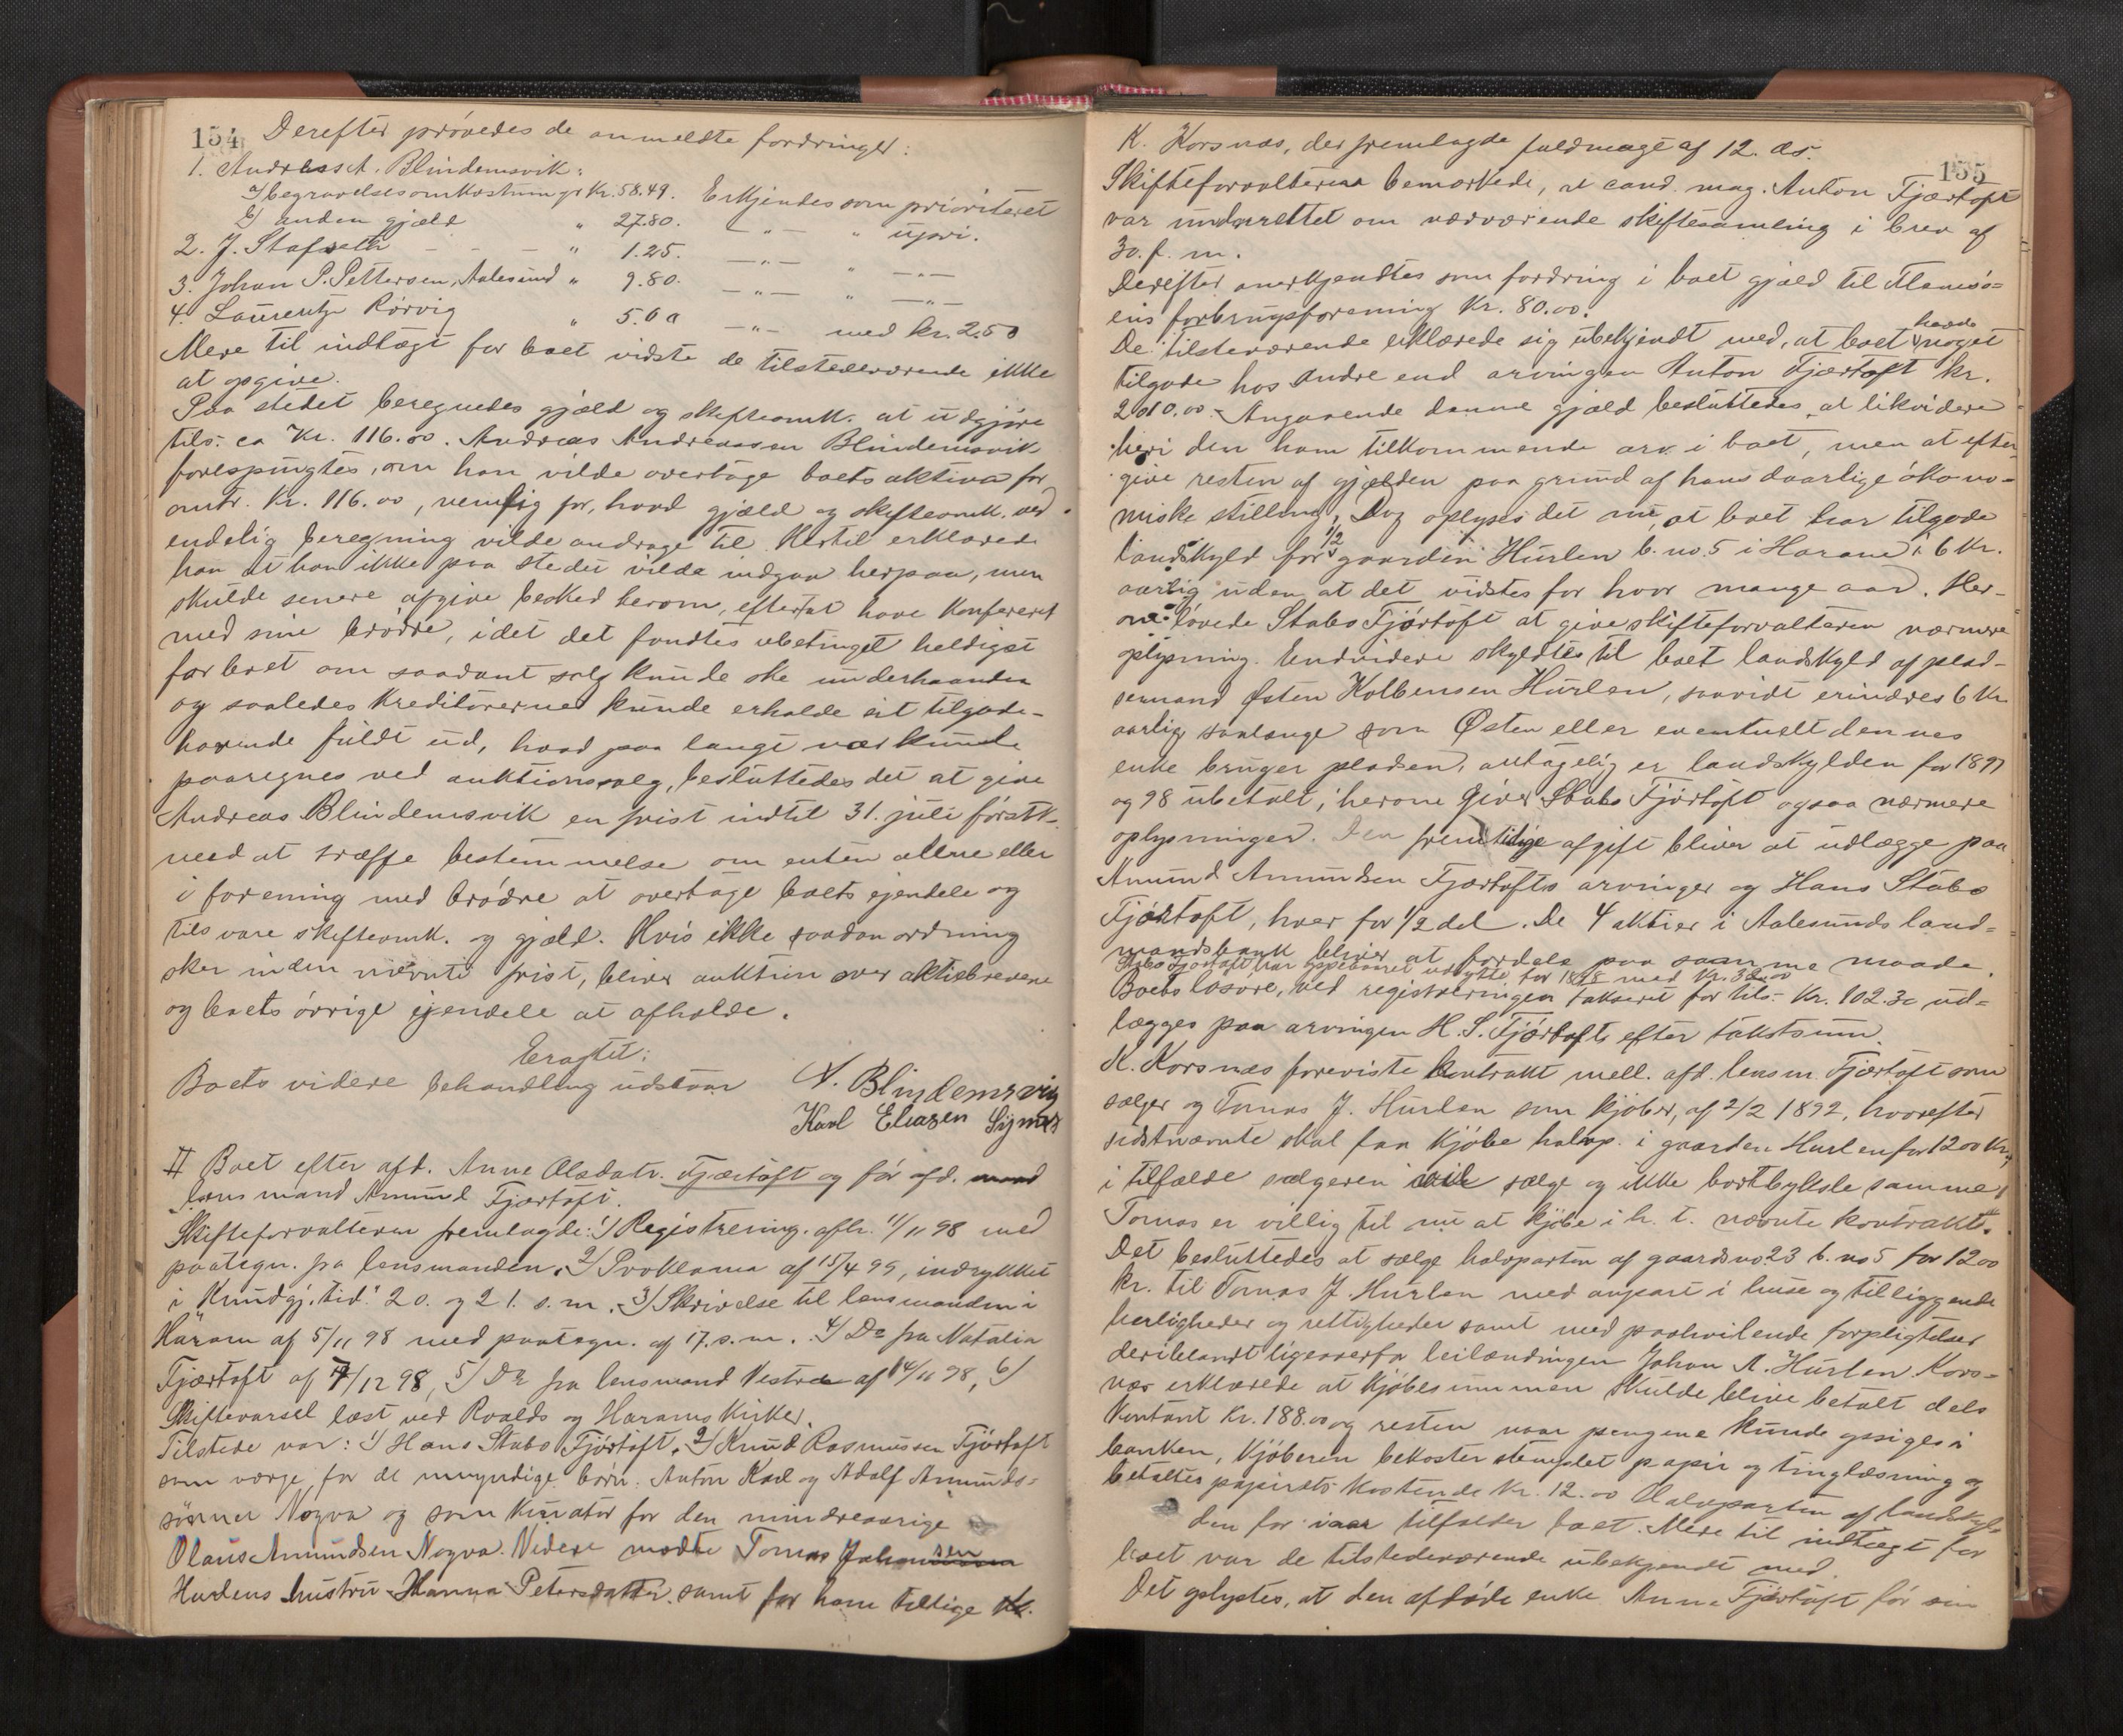 154 Derefter prøvedes de anmeldte fordringer:
1. Andreas A. Blindemsvik:
a/ begravelsesomkostninger Kr. 58.49. Erkjendes som prioriteret
b/ anden gjæld " 27.80. — " — " upri.
2. J. Stafseth - - - " 1.25. — " — " — " —
3. Johan P. Pettersen, Aalesund " 9.80. — " — " — " —
4. Laurentze Rørvig " 5.00 — " — med kr. 2.50
Mere til indtægt for boet vidste de tilstedeværende ikke
at opgive.
Paa stedet beregnedes gjæld og skifteomk. at udgjøre
tils. ca Kr. 116.00. Andreas Andreassen Blindemsvik
forespurgtes, om han vilde overtage boets aktiva for
omtr. Kr. 116.00, nemlig for, hvad gjæld og skifteomk. ved
endelig beregning vilde andrage til. Hertil erklærede
han at han ikke paa stedet vilde indgaa herpaa, men
skulde senere afgive besked herom, efterat have konfereret
med sine brødre, idet det fandtes ubetinget heldigst
for boet om saadant salg kunde ske underhaanden
og saaledes kreditorerne kunde erholde sit tilgode-
havende fuldt ud, hvad paa langt nær kunde
paaregnes ved auktionssalg, besluttedes det at give
Andreas Blindemsvik en frist indtil 31. juli førstk.
med at træffe bestemmelse om enten alene eller
i forening med brødre at overtage boets ejendele og
tilsvare skifteomk. og gjæld. Hvis ikke saadan ordning
sker inden nævnte frist, bliver auktion over aktiebrevene
og boets øvrige ejendele at afholde.
Eragtet:
Boets videre behandling udstaar A. Blindemsvig
Karl Eliasen Synnes
II Boet efter afd. Anne Olsdatr. Fjærtoft og før afd. mand
lensmand Amund Fjærtoft.
Skifteforvalteren fremlagde: 1/ Registrering. afh. 11/11 98 med
paategn. fra lensmanden, 2/ Proklama af 15/4 99, indrykket
i "Kundgj. tid." 20. og 21. s. m. 3/ Skrivelse til lensmanden i
Haram af 5/11 98 med paategn. af 17. s. m. 4/ Do fra Natalia
Fjærtoft af 7/12 98, 5/ Do fra lensmand Vestre af 14/11 98, 6/
Skiftevarsel læst ved Roalds og Harams Kirker.
Tilstede var: 1/ Hans Stabo Fjørtoft, 2/ Knud Rasmussen Fjørtoft
som værge for de umyndige børn: Anton Karl og Adolf Amunds-
sønner Nogva og som kurator for den mindreaarige
Olaus Amundsen Nogva. Videre mødte Tomas Johansen
Hurlens hustru Hanna Petersdatter samt for ham tillige
K. Korsnæs, der fremlagde fuldmagt af 12. ds. 155
Skifteforvalteren bemærkede, at cand. mag. Anton Fjærtoft
var underrettet om nærværende skiftesamling i brev af
30. f. m.
Derefter anerkjendtes som fordring i boet gjæld til Flemsø-
ens forbrugsforening Kr. 80.00.
De tilstedeværende erklærede sig ubekjendt med, at boet havde noget
tilgode hos andre end arvingen Anton Fjærtoft kr.
2010.00. Angaaende denne gjæld besluttedes at likvidere
heri den ham tilkommende arv i boet, men at efter-
give resten af gjælden paa grund af hans daarlige økono-
miske stilling. Dog oplyses det nu, at boet har tilgode
landskyld for 1/2 gaarden Hurlen b. no. 5 i Haram i 6 Kr.
aarlig uden at det vidstes for hvor mange aar. Her-
om lovede Stabo Fjørtoft at give skifteforvalteren nærmere
oplysning. Endvidere skyldtes til boet landskyld af plad-
semand Østen Kolbensen Hurlen, saavidt erindres 6 Kr
aarlig saalænge som Østen eller eventuelt dennes
enke bruger pladsen, antagelig er landskylden for 1897
og 98 ubetalt; herom giver Stabo Fjørtoft ogsaa nærmere
oplysninger. Den fremtidige afgift bliver at udlægge paa
Amund Amundsen Fjærtofts arvinger og Hans Stabo
Fjørtoft, hver for 1/2 del. De 4 aktier i Aalesunds land-
mandsbank bliver at fordele paa samme maade.
Stabo Fjørtoft har oppebaaret udbytte for 1898 med Kr. 32.00
Boets løsøre, ved registreringen takseret for tils. Kr. 102.30 ud-
lægges paa arvingen H. S. Fjørtoft efter takstsum.
K. Korsnæs foreviste kontrakt mell. afd. lensm. Fjærtoft som
sælger og Tomas J. Hurlen som kjøber, af 2/2 1892, hvorefter
sidstnævnte skal faa kjøbe halvp. i gaarden Hurlen for 1200 Kr.
i tilfælde sælgeren vil sælge og ikke bortbyksle samme.
Tomas er villig til nu at kjøbe i h. t. nævnte kontrakt.
Det besluttedes at sælge halvparten af gaardsno 23 b. no 5 for 1200
kr. til Tomas J. Hurlen med anpart i huse og tilliggende
herligheder og rettigheder samt med paahvilende forpligtelser
deriblandt ligeoverfor leilændingen Johan A. Hurlen. Kors-
næs erklærede at kjøbesummen skulde blive betalt dels
kontant Kr. 188.00 og resten naar pengene kunde opsiges i
banken, kjøberen bekoster stemplet papir og tinglæsning og
betaltes papirets kostende Kr. 12.00 Halvparten af landskyl-
den for iaar tilfalder boet. Mere til indtægt for
boet var de tilstedeværende ubekjendt med.
Det oplystes, at den afdøde enke Anne Fjærtoft før sin